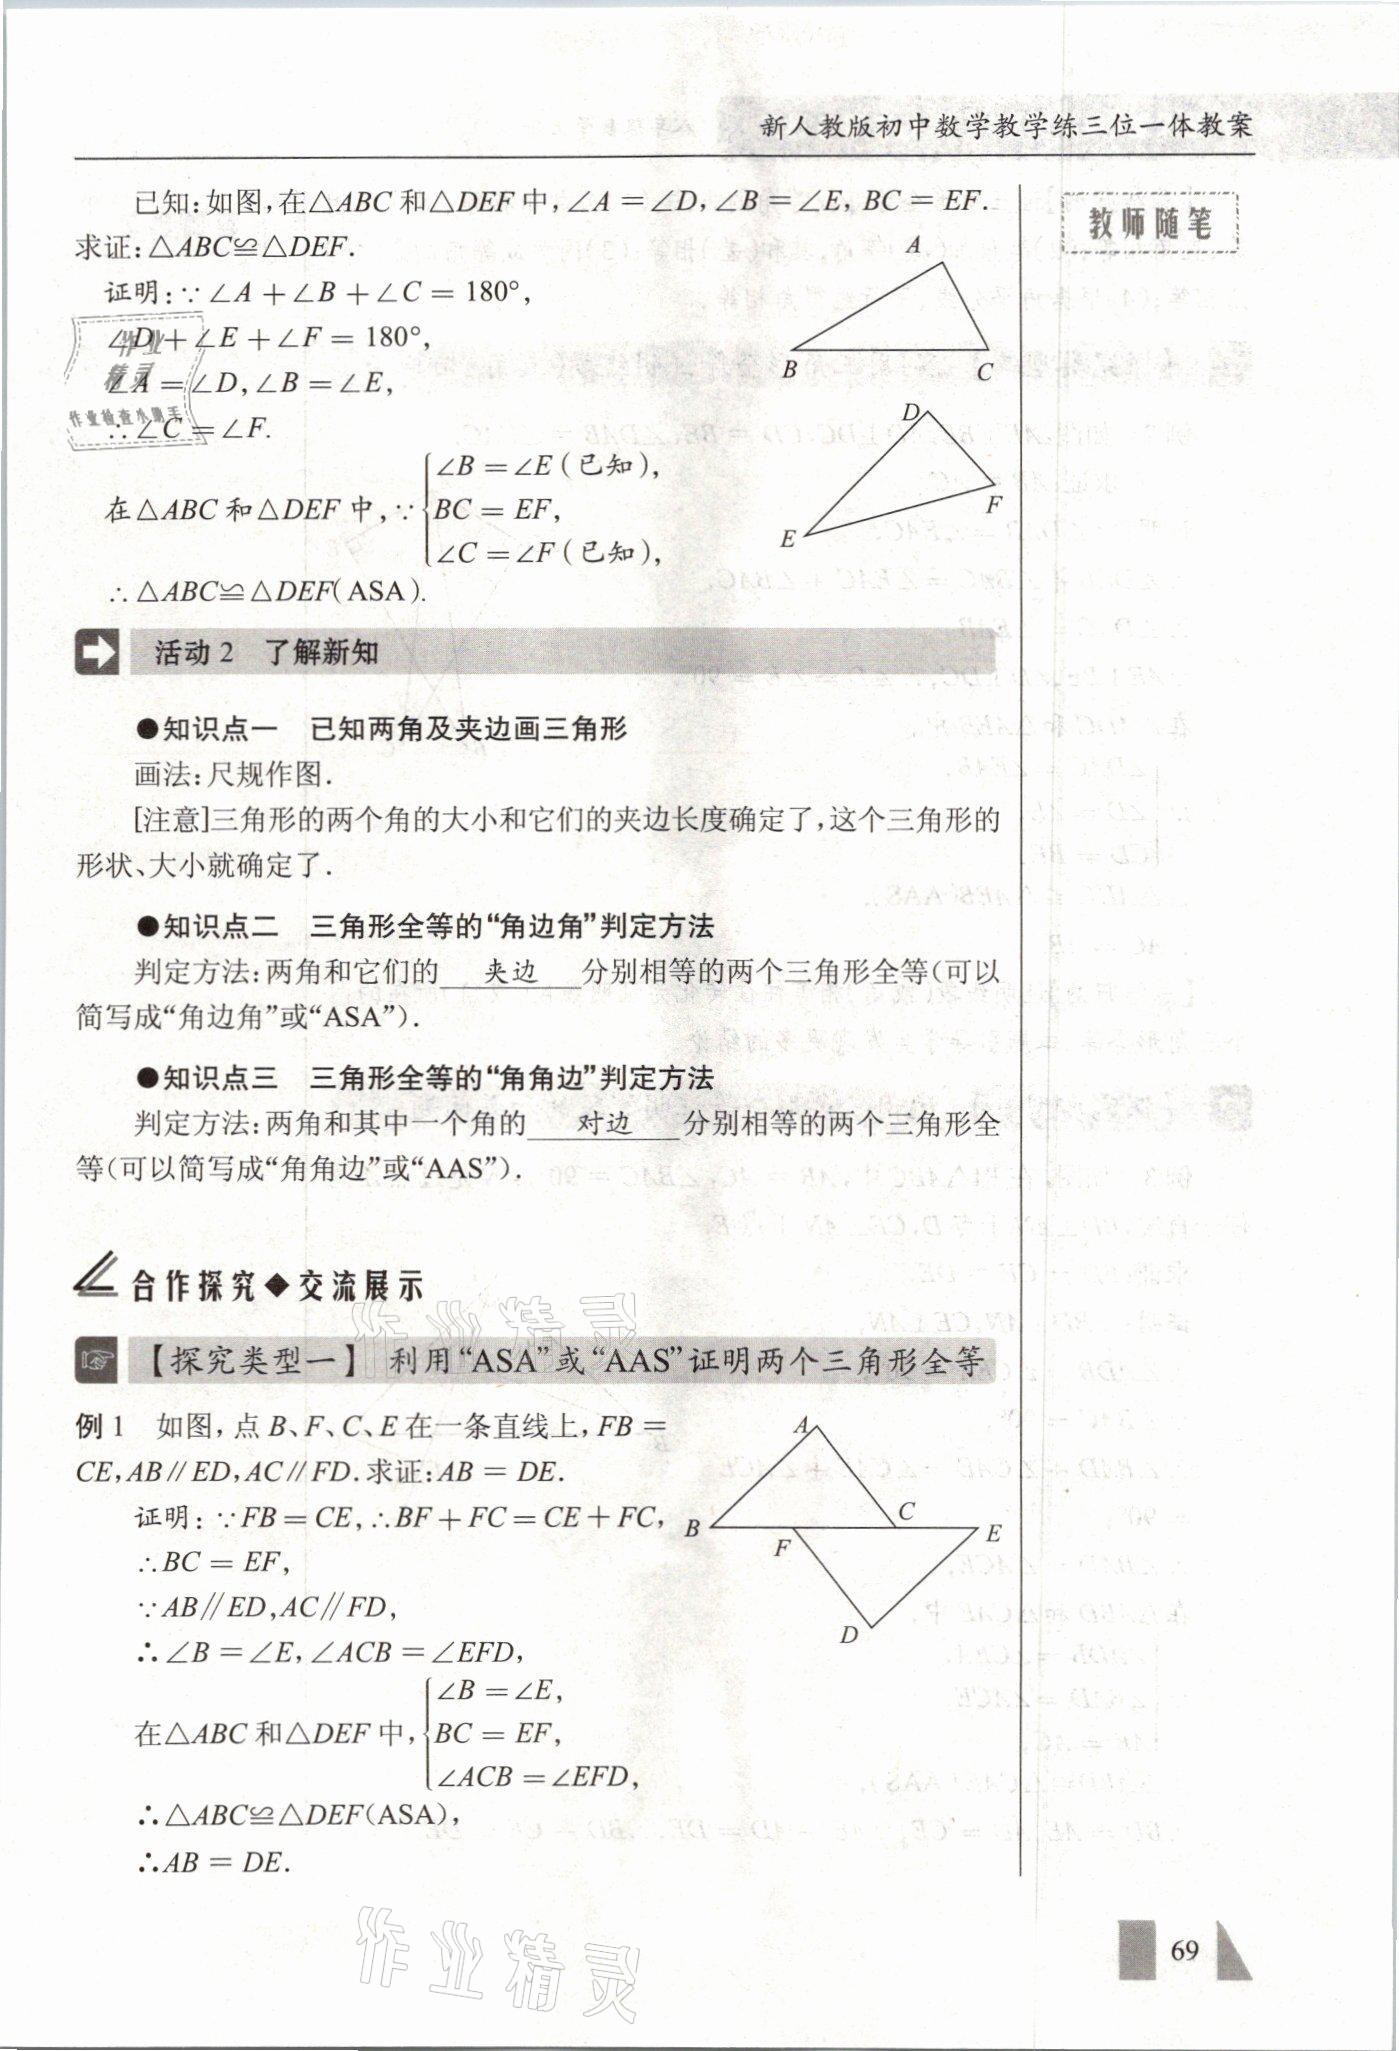 新人教版初中数学教学练三位一体教案
教师随笔
已知:如图,在△ABC和△DEF中,∠A=∠D,∠B=∠E,BC=EF.
求证:△ABC≌△DEF.
证明:∵∠A+∠B+∠C=180°,
∠D+∠E+∠F=180°,
∠A=∠D,∠B=∠E,
∴∠C=∠F.
∠B=∠E(已知),
在△ABC和△DEF中,∵ BC=EF,
∠C=∠F(已知),
∴△ABC≌△DEF(ASA).
A
B
C
D
F
E
作业
精灵
作业检查小助手
活动2 了解新知
●知识点一 已知两角及夹边画三角形
画法:尺规作图.
[注意]三角形的两个角的大小和它们的夹边长度确定了,这个三角形的
形状、大小就确定了.
●知识点二 三角形全等的“角边角”判定方法
判定方法:两角和它们的 夹边 分别相等的两个三角形全等(可以
简写成“角边角”或“ASA”).
●知识点三 三角形全等的“角角边”判定方法
判定方法:两角和其中一个角的 对边 分别相等的两个三角形全
等(可以简写成“角角边”或“AAS”).
合作探究◆交流展示
作业精灵
【探究类型一】 利用“ASA”或“AAS”证明两个三角形全等
例1 如图,点B、F、C、E在一条直线上,FB=
CE,AB∥ED,AC∥FD.求证:AB=DE.
证明:∵FB=CE,∴BF+FC=CE+FC,
∴BC=EF,
∵AB∥ED,AC∥FD,
∴∠B=∠E,∠ACB=∠EFD,
∠B=∠E,
在△ABC和△DEF中, BC=EF,
∠ACB=∠EFD,
∴△ABC≌△DEF(ASA),
∴AB=DE.
A
B
C
E
F
D
作业精灵
69